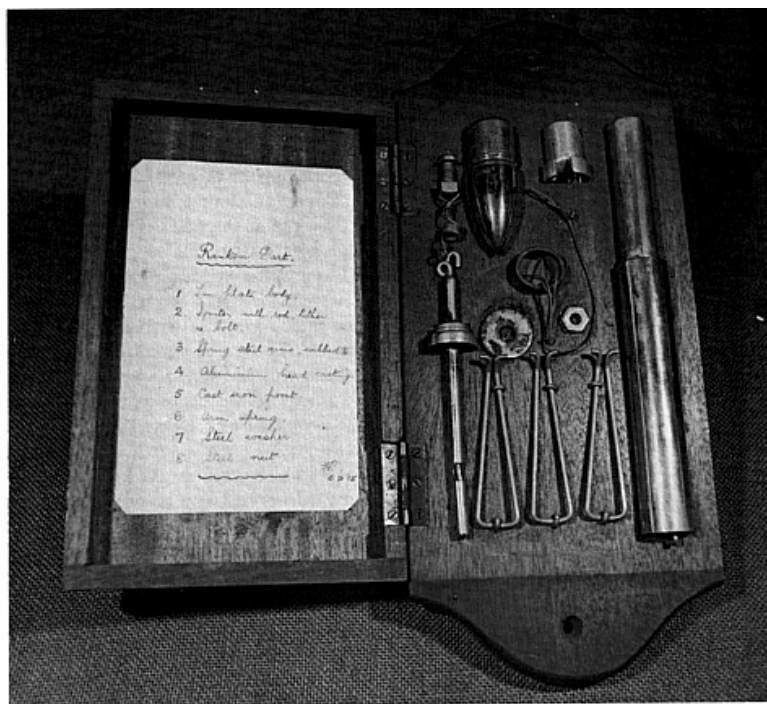 Rankin Dart.
1 Tin plate body.
2 Igniter with rod, tether
& bolt.
3 Spring steel arms
4 Aluminium head casting
5 Cast iron point
6 Arm spring.
7 Steel washer
8 Steel nut.